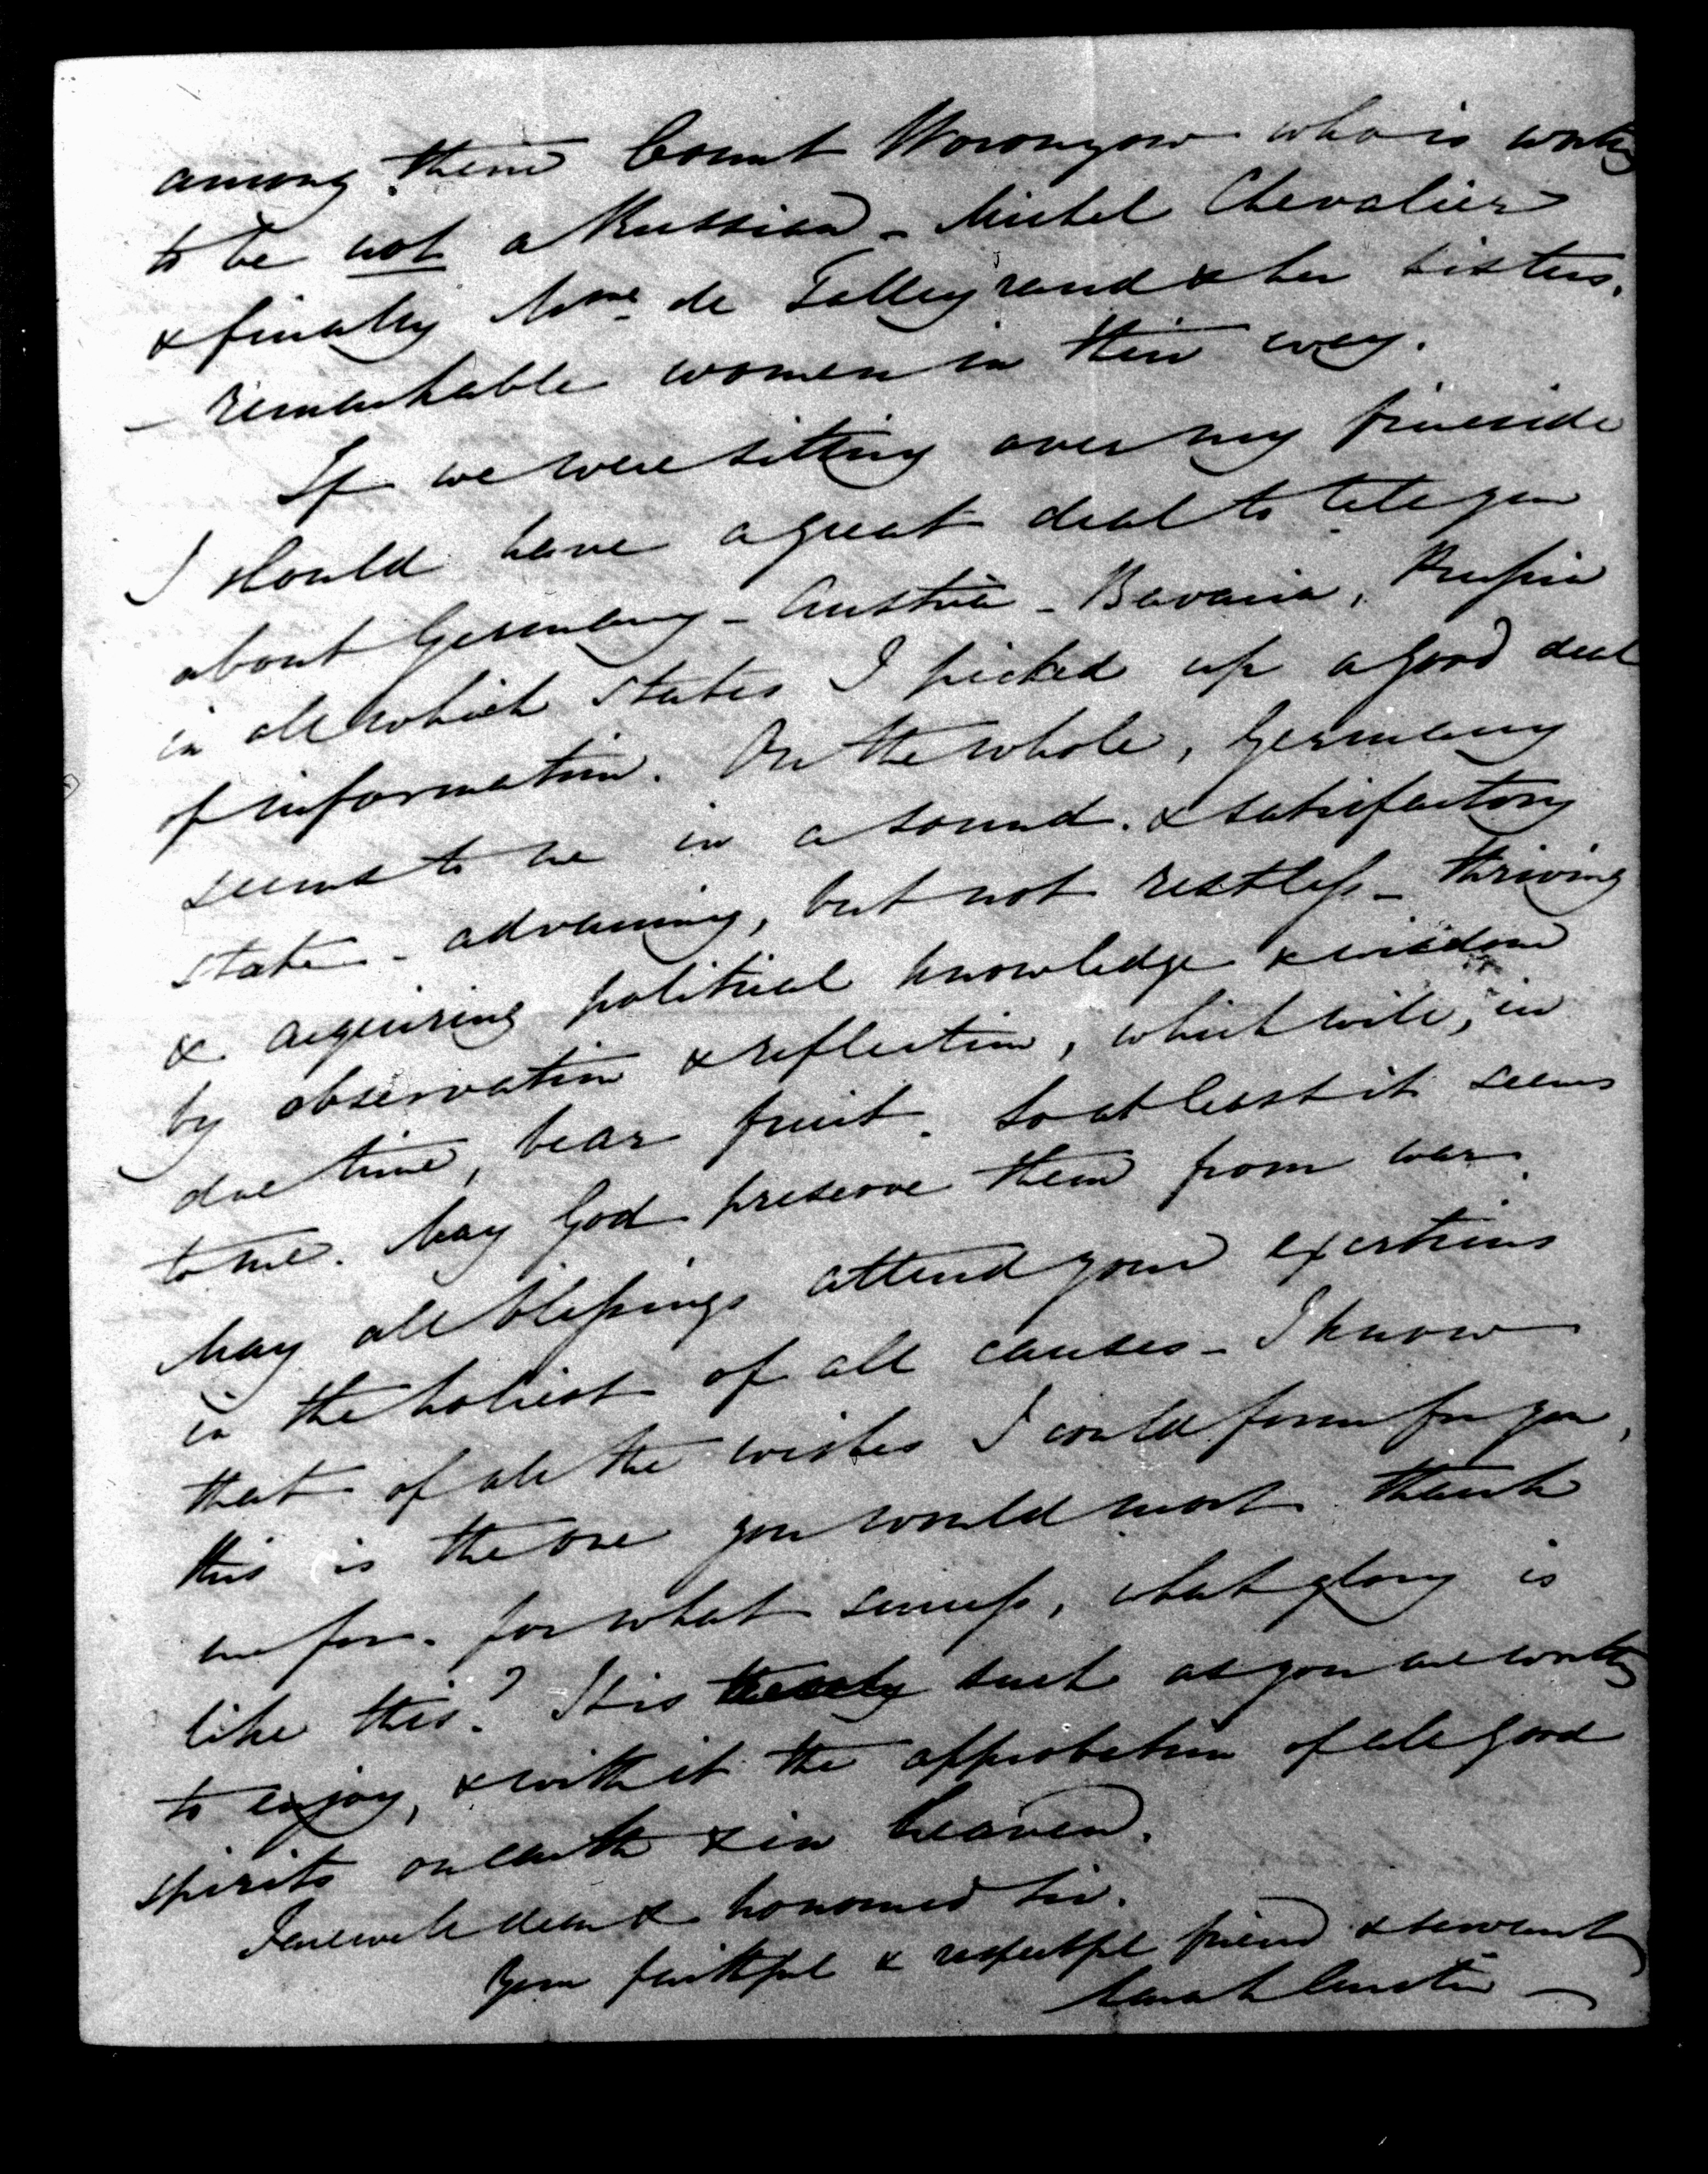 among them Count Woronzow who is worthy
to be not a Russian – Michel Chevalier
& finally Mme de Talleyrand & her sisters,
– remarkable women in their way.
If we were sitting over my fireside
I should have a great deal to tell you
about Germany – Austria – Bavaria, Prussia
in all which states I picked up a good deal
of information. On the whole, Germany
seems to me in a sound & satisfactory
state – advancing, but not restless – thriving
& acquiring political knowledge & wisdom
by observation & reflection, which will, in
due time, bear fruit. So at least it seems
to me. May God preserve them from war.
May all blessings attend your exertions
in the holiest of all causes – I know
that of all the wishes I could form for you,
this is the one you would most thank
me for. for what success, what glory is
like this? It is such as you are worthy
to enjoy, & with it the approbation of all good
spirits on earth & in heaven.
Farewell dear & honoured Sir.
Your faithful & respectful friend & servant
Sarah Austin –